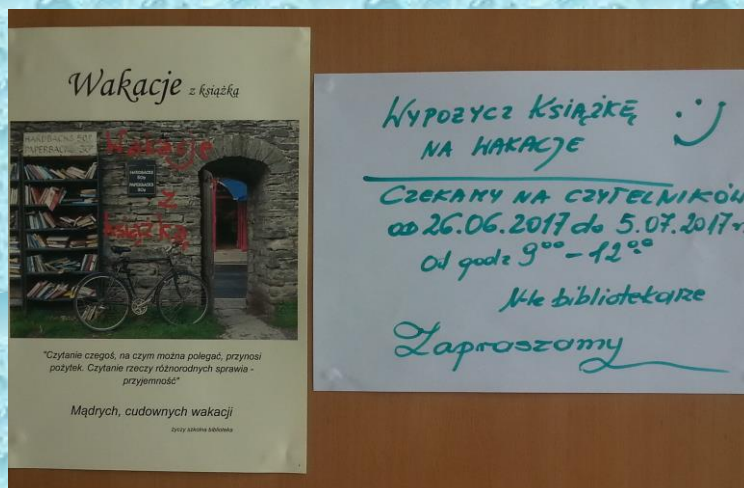 Wakacje z książką
HARDBACKS 50P
PAPERBACKS 30P
Wakacje
z
książką
"Czytanie czegoś, na czym można polegać, przynosi
pożytek. Czytanie rzeczy różnorodnych sprawia -
przyjemność"
Mądrych, cudownych wakacji
życzy szkolna biblioteka
WYPOŻYCZ KSIĄŻKĘ :)
NA WAKACJE
CZEKAMY NA CZYTELNIKÓW
od 26.06.2017 do 5.07.2017 r.
Od godz 9⁰⁰ - 12⁰⁰
N-le bibliotekarze
Zapraszamy